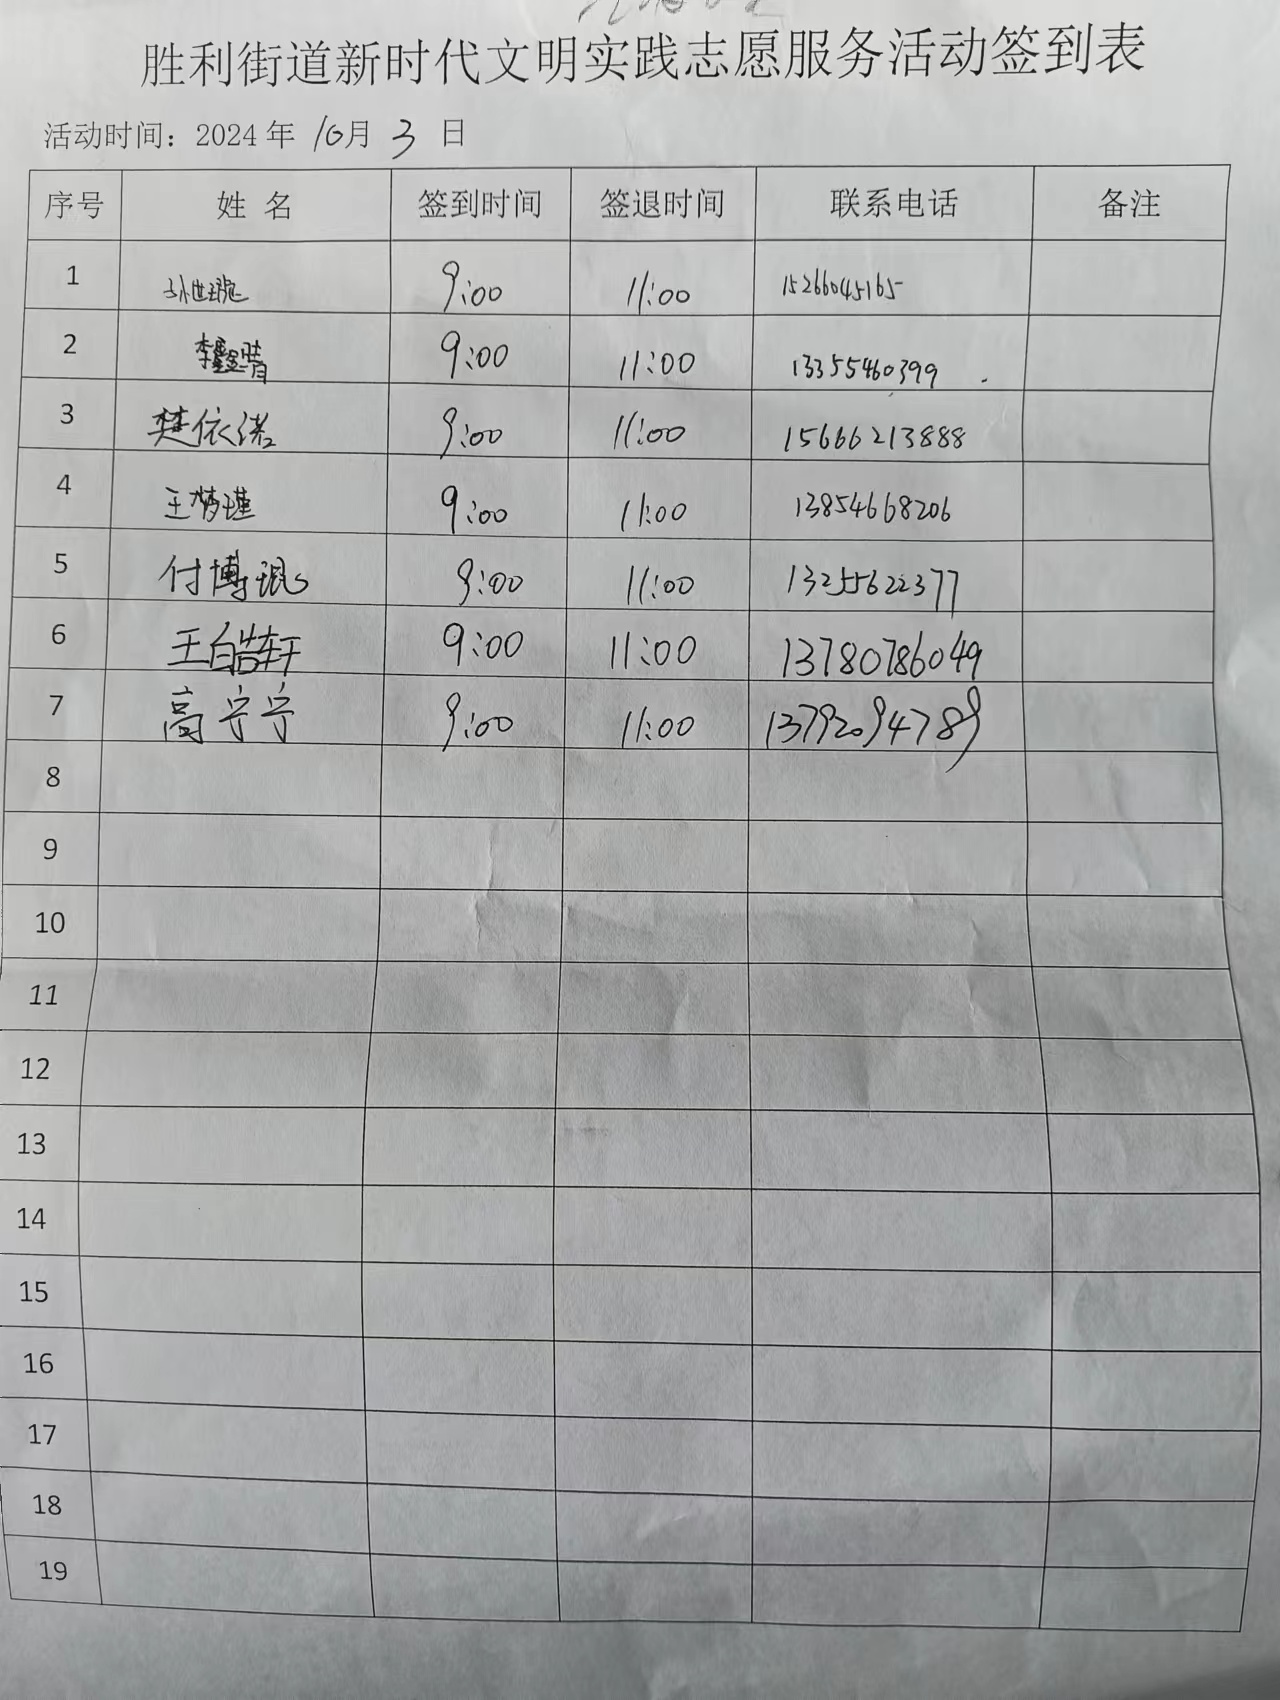 胜利街道新时代文明实践志愿服务活动签到表
活动时间：2024 年 10月 3 日
序号 姓 名 签到时间 签退时间 联系电话 备注
1 9:00 11:00 15266045165
2 李鑫晴 9:00 11:00 13355460399
3 楚依诺 9:00 11:00 15666213888
4 王梦瑾 9:00 11:00 13854668206
5 付博琨 9:00 11:00 13255622377
6 王皓轩 9:00 11:00 13780786049
7 高宁宁 9:00 11:00 13792094789
8
9
10
11
12
13
14
15
16
17
18
19